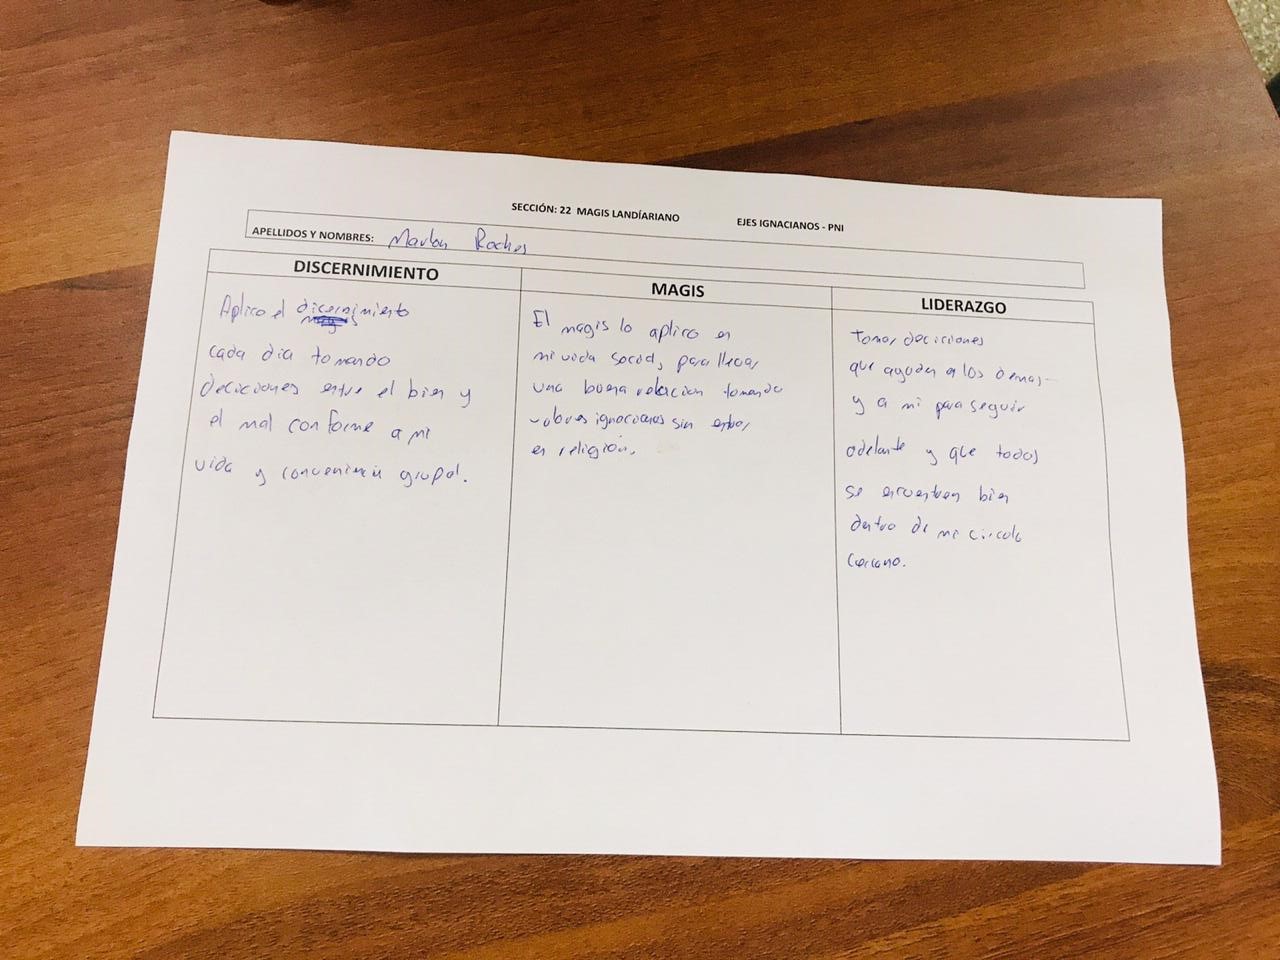 SECCIÓN: 22 MAGIS LANDÍARIANO EJES IGNACIANOS - PNI
APELLIDOS Y NOMBRES: Marlon
DISCERNIMIENTO
Aplico el dicernimiento
cada dia tomando
deciciones entre el bien y
el mal conforme a mi
vida y convenincia grupal.
MAGIS
El magis lo aplico en
mi vida social, para llevar
una buena relacion tomando
valores ignacianos sin entrar
en religión.
LIDERAZGO
Tomar deciciones
que ayudan a los demas
y a mi para seguir
adelante y que todos
se encuentren bien
dentro de mi circulo
cercano.